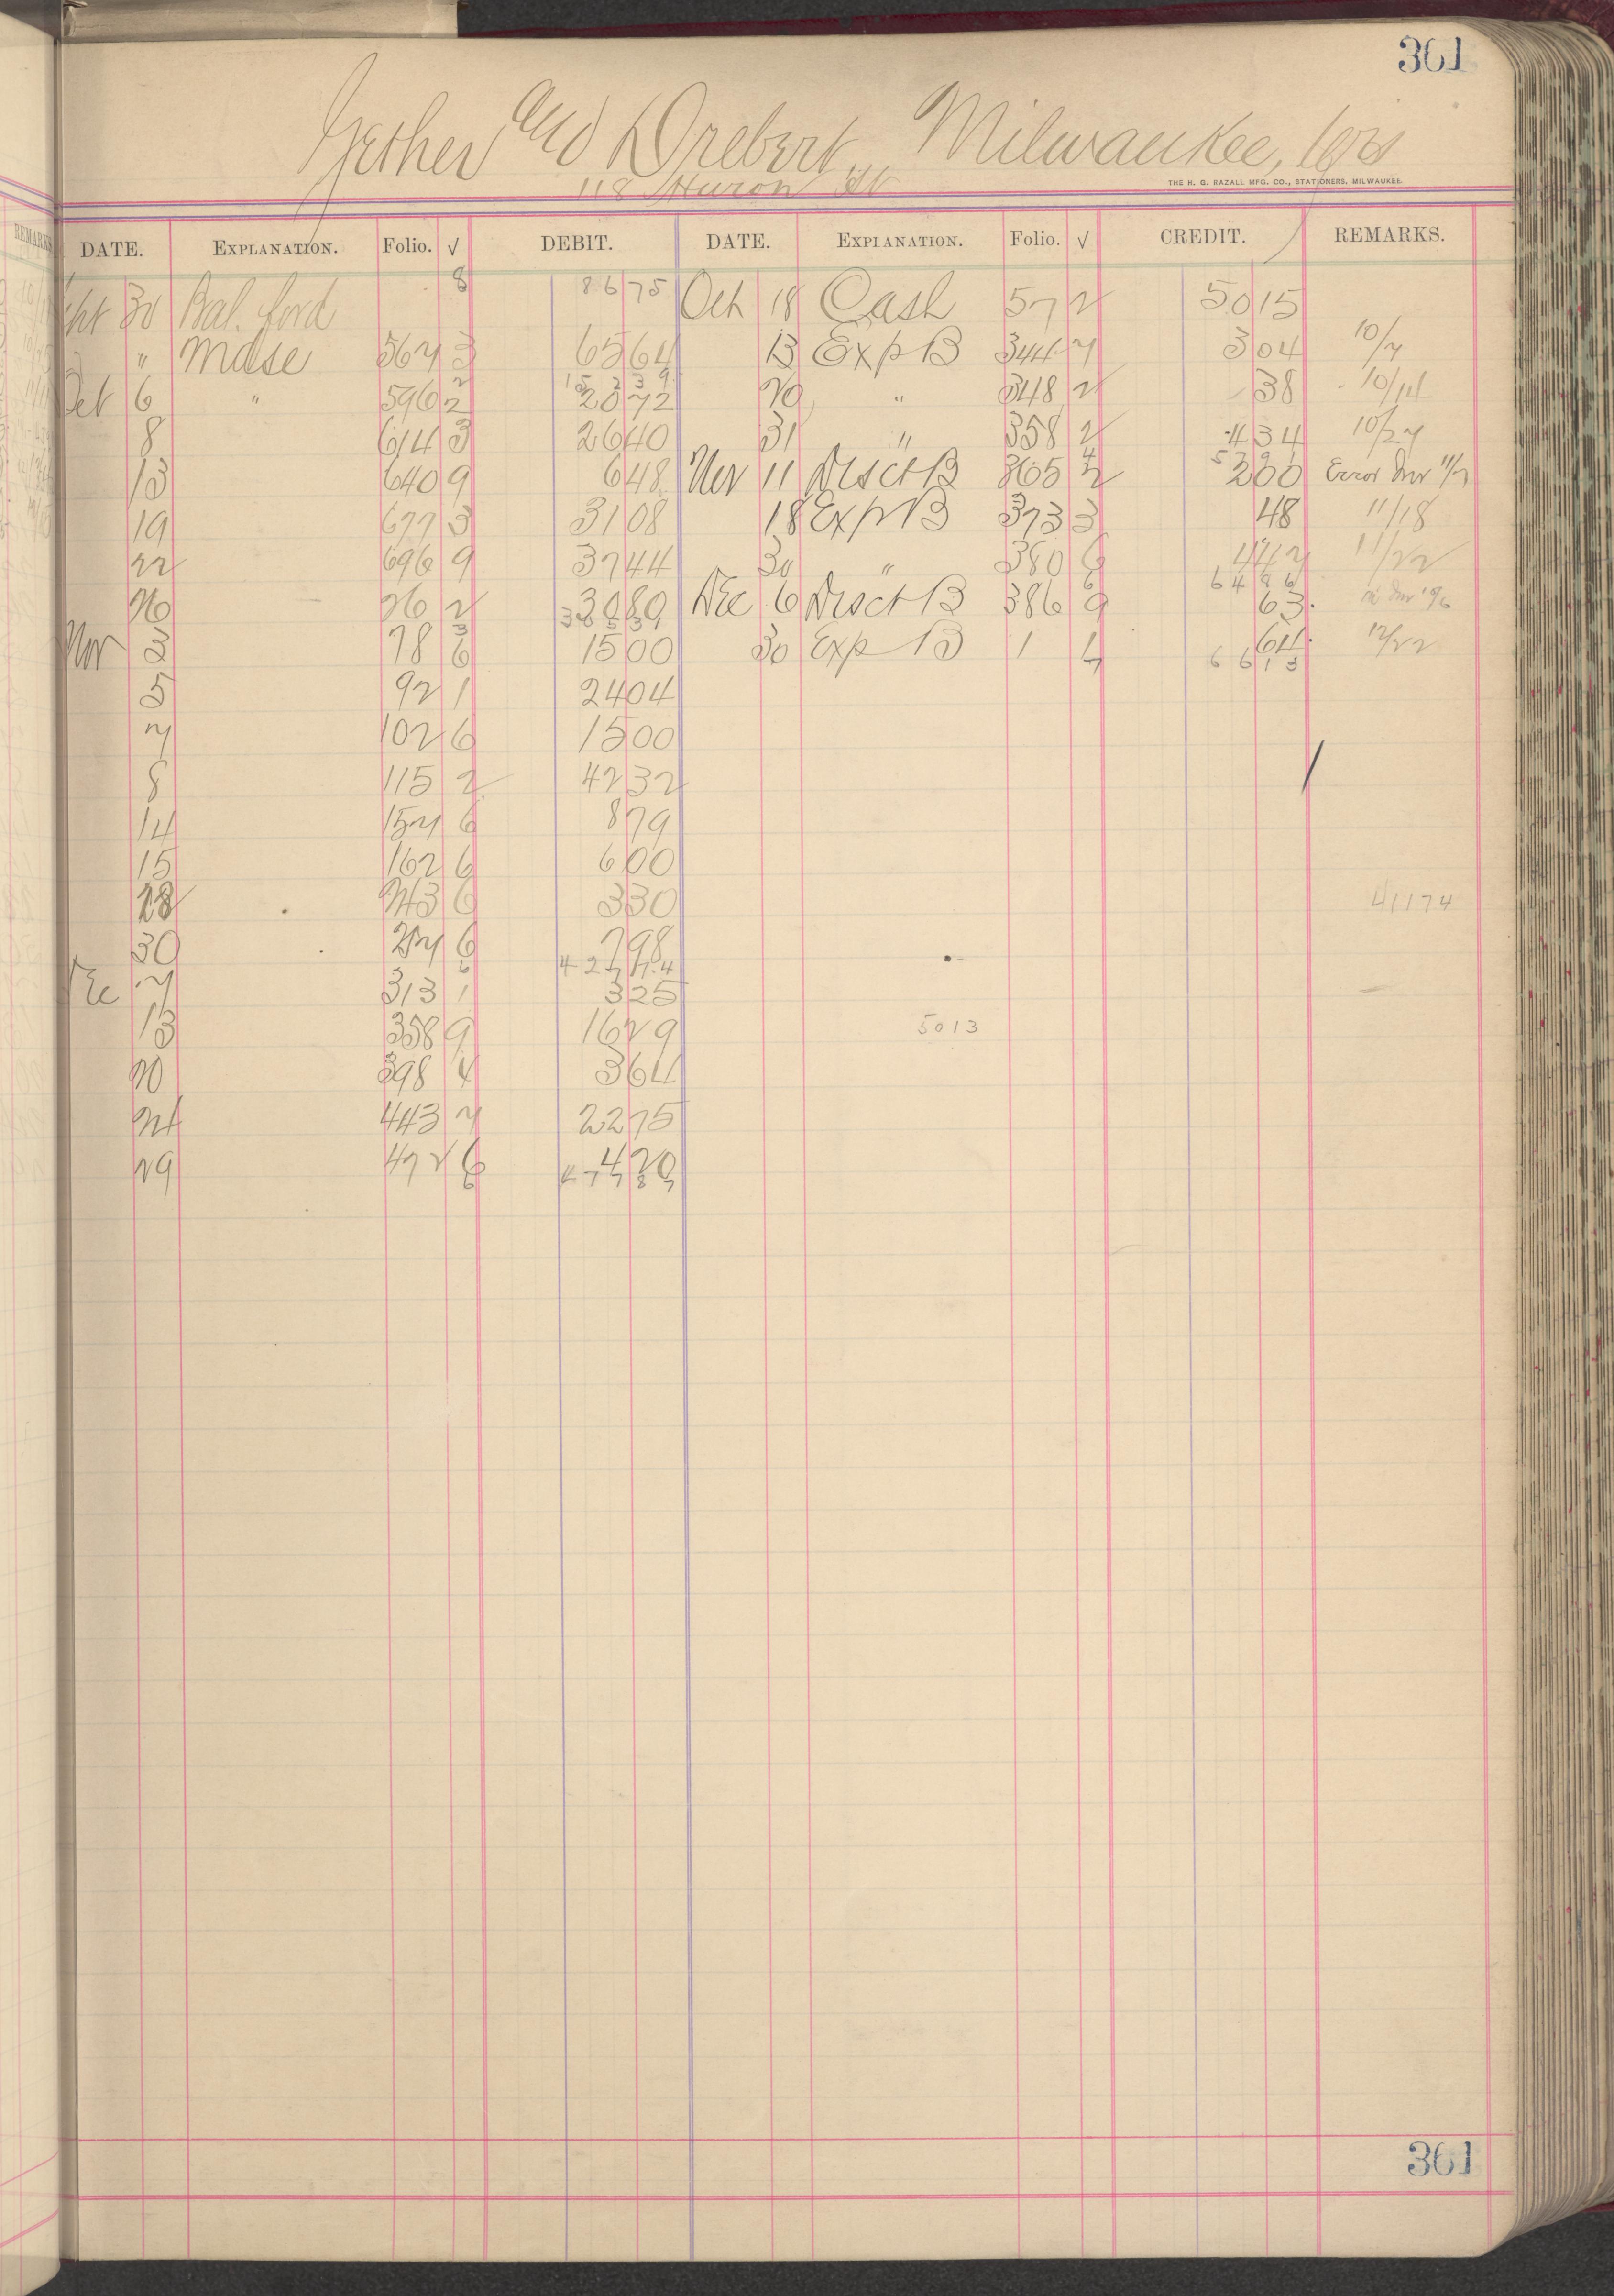 361
Gether and Drebert Milwaukee, Wis
118 Huron St
THE H. G. RAZALL MFG. CO., STATIONERS, MILWAUKEE.
DATE. EXPLANATION. Folio. √ DEBIT. DATE. EXPLANATION. Folio. √ CREDIT. REMARKS.
Sept 30 Bal. ford 8 86 75 Oct 18 Cash 57 2 50 15
" Mdse 567 3 65 64 13 Exp B 344 7 3 04 10/7
152 39
Oct 6 " 596 2 20 72 20 " 348 2 38 10/14
8 614 3 26 40 31 " 358 2 4 34 10/27
13 640 9 6 48 Nov 11 Disct B 365 2 2 00 Error Inv 11/7
19 677 3 31 08 18 Exp B 373 3 48 11/18
22 696 9 37 44 30 " 380 6 4 42 11/22
64 86
26 26 2 30 80 Dec 6 Disct B 386 9 63
Nov 2 78 6 15 00 30 Exp B 1 64 12/22
66 13
5 92 1 24 04
7 102 6 15 00
8 115 2 42 32
14 157 6 8 79
15 162 6 6 00
28 243 6 3 30 411 74
30 257 6 7 98
Dec 7 313 1 3 25
13 358 9 16 29 50 13
20 398 4 3 64
24 443 7 22 75
29 472 6 4 20
361